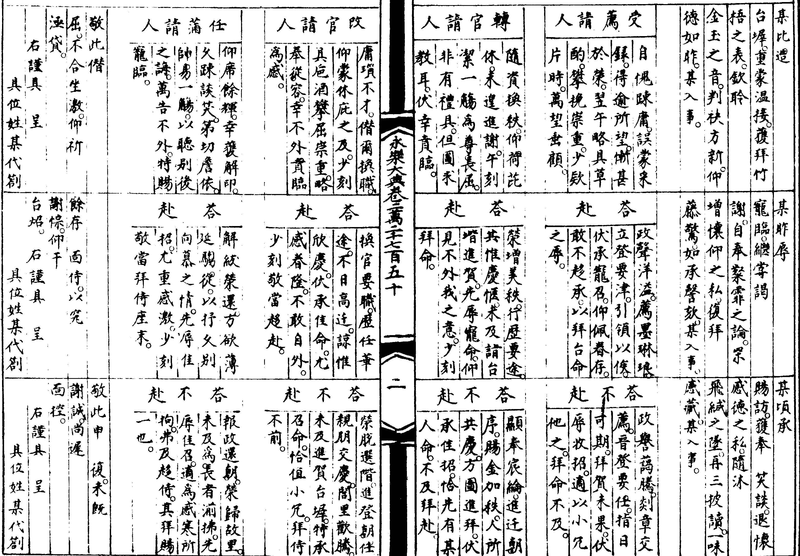 某比造
台墀。重蒙溫接。獲拜竹
梧之表。欽聆
金玉之音。判袂方新。仰
德如昨。某入事。
受薦請人
自愧疎庸。誤蒙采
錄。得逾所望。慚甚
於榮。翌午略具草
酌。攀挽崇重。少款
片時。萬望垂顧。
轉官請人
隨資換秩。仰荷芘
休。未遑進謝。午刻
潔一觴為尊長。屈
非有禮具。但圖來
教耳。伏幸賁臨。
永樂大典卷二萬二千七百五十
二
改官請人
庸瑣不才。僭爾換職。
仰蒙休庇之及。少刻
具卮酒。攀屈崇重。略
奉從容。幸不外。賁臨
為感。
任滿請人
仰席餘輝。幸獲解印。
久疎談笑。弟切詹依。
易一觴。以聽別後
之誨。萬告不外。特賜
寵臨。
敬此僭
屈。不合坐激。仰祈
貸。
右謹具 呈
具位姓某代劄
某昨辱
寵臨。纔寧謁
謝。自奉霏之論。
增懷仰之私。復拜
藤。驚如承謦欬。某入事。
答赴
政聲洋溢。薦墨琳琅。
立登要津。引領以俟。
伏承寵召。仰佩眷存。
敢不趨承。以拜台命
之辱。
答赴
榮增美秩。行歷要途。
共惟慶愜。未及詣台
堦進賀。先辱寵命。仰
見不外我之意。少刻
拜命。
答赴
換官要職。歷任華
途。不日高遷。諒惟
欣慶。伏承佳命。尤
感眷隆。不敢自外。
少刻敬當趨赴。
答赴
解紱榮還。方欲薄
延騶從。以抒久別
向慕之情。先辱佳
招。尤重感激。少刻
敬當拜侍座末。
餘存 面侍。以究
謝悰。仰干
台炤。右謹具 呈
具位姓某代劄
某頃承
賜訪。獲奉 笑談。退懷
感德之私。隨沐
飛緘之墜。再三披讀。
感藏。某入事。
答不赴
政譽藹騰。刻章交
薦。晉登要任。指日
可期。拜賀未果。伏
辱招。適以小冗
他之。拜命不及。
答不赴
顯奉宸綸。進遷朝
序。賜金加秩。人所
共慶。方圖進拜。伏
承佳招。恰先有某
人命。不及拜赴。
答不赴
榮脫選階。進登朝任。
親朋交慶。閭里歡騰。
未及進賀台墀。特承
召命。恰值小冗。拜侍
不前。
答不赴
報政還朝。榮歸故里。
未及為長者湔拂。先
辱佳召。適為感寒所
拘。弗及趨侍。真拜賜
一也。
敬此申 復。未既
謝誠。尚遲
面控。
右謹具 呈
具位姓某代劄